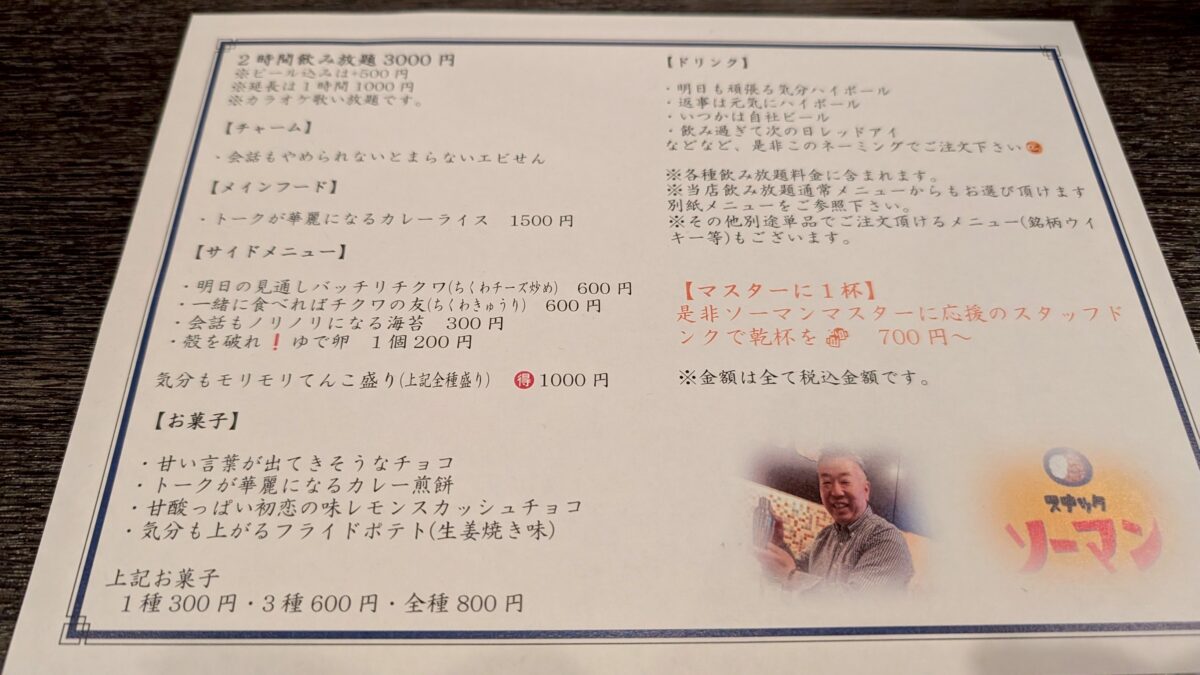 2時間飲み放題 3000円
※ビール込みは+500円
※延長は1時間1000円
※カラオケ歌い放題です。
【チャーム】
・会話もやめられないとまらないエビせん
【メインフード】
・トークが華麗になるカレーライス 1500円
【サイドメニュー】
・明日の見通しバッチリチクワ(ちくわチーズ炒め) 600円
・一緒に食べればチクワの友(ちくわきゅうり) 600円
・会話もノリノリになる海苔 300円
・殻を破れ❗ゆで卵 1個200円
気分もモリモリてんこ盛り(上記全種盛り) 得 1000円
【お菓子】
・甘い言葉が出てきそうなチョコ
・トークが華麗になるカレー煎餅
・甘酸っぱい初恋の味レモンスカッシュチョコ
・気分も上がるフライドポテト(生姜焼き味)
上記お菓子
1種300円・3種600円・全種800円
【ドリンク】
・明日も頑張る気分ハイボール
・返事は元気にハイボール
・いつかは自社ビール
・飲み過ぎて次の日レッドアイ
などなど、是非このネーミングでご注文下さい
※各種飲み放題料金に含まれます。
※当店飲み放題通常メニューからもお選び頂けます
別紙メニューをご参照下さい。
※その他別途単品でご注文頂けるメニュー(銘柄ウイ
キー等)もございます。
【マスターに1杯】
是非ソーマンマスターに応援のスタッフド
ンクで乾杯を🍻 700円～
※金額は全て税込金額です。
スナック
ソーマン